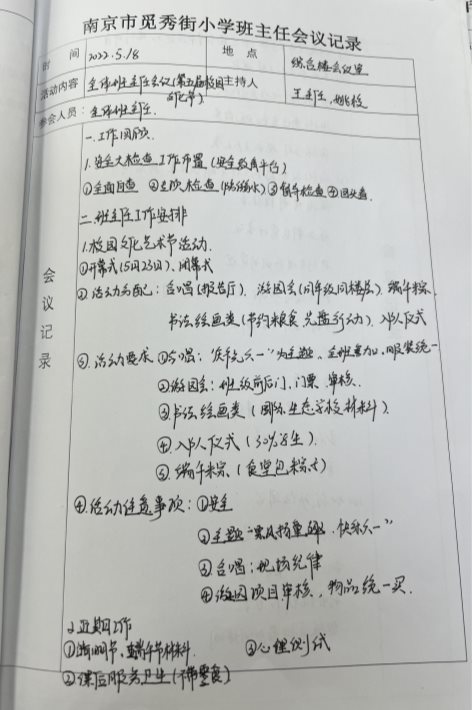 南京市觅秀街小学班主任会议记录
时 间 2022.5.18 地 点 综合楼会议室
活动内容 全体班主任会议(第五届校园文化节) 主持人 王主任、姚校
参会人员: 全体班主任.
会议记录
一. 工作回顾
1. 安全大检查工作布置(安全教育平台)
①全面自查 ②主次检查(防溺水) ③餐午检查 ④回头查.
二. 班主任工作安排
1. 校园文化艺术节活动.
①开幕式(5月23日)、闭幕式
②活动分配: 合唱(报告厅). 游园会(同年级同楼层). 端午粽.
书法绘画类(节约粮食 光盘行动). 入队仪式
③. 活动要求 ①合唱: “庆六一”为主题、全班参加、服装统一
②游园会: 班级前后门、门票、审核.
③书法绘画类(国际生态学校材料).
④入队仪式(30%学生).
⑤端午粽(食堂包粽子)
④. 活动注意事项: ①安全
②主题“童风扬童趣 快乐六一”
③合唱: 现场纪律
④游园项目审核、物品统一买.
2. 近期工作
①清明节、端午节材料. ③心理测试
②课后服务卫生(不带零食)